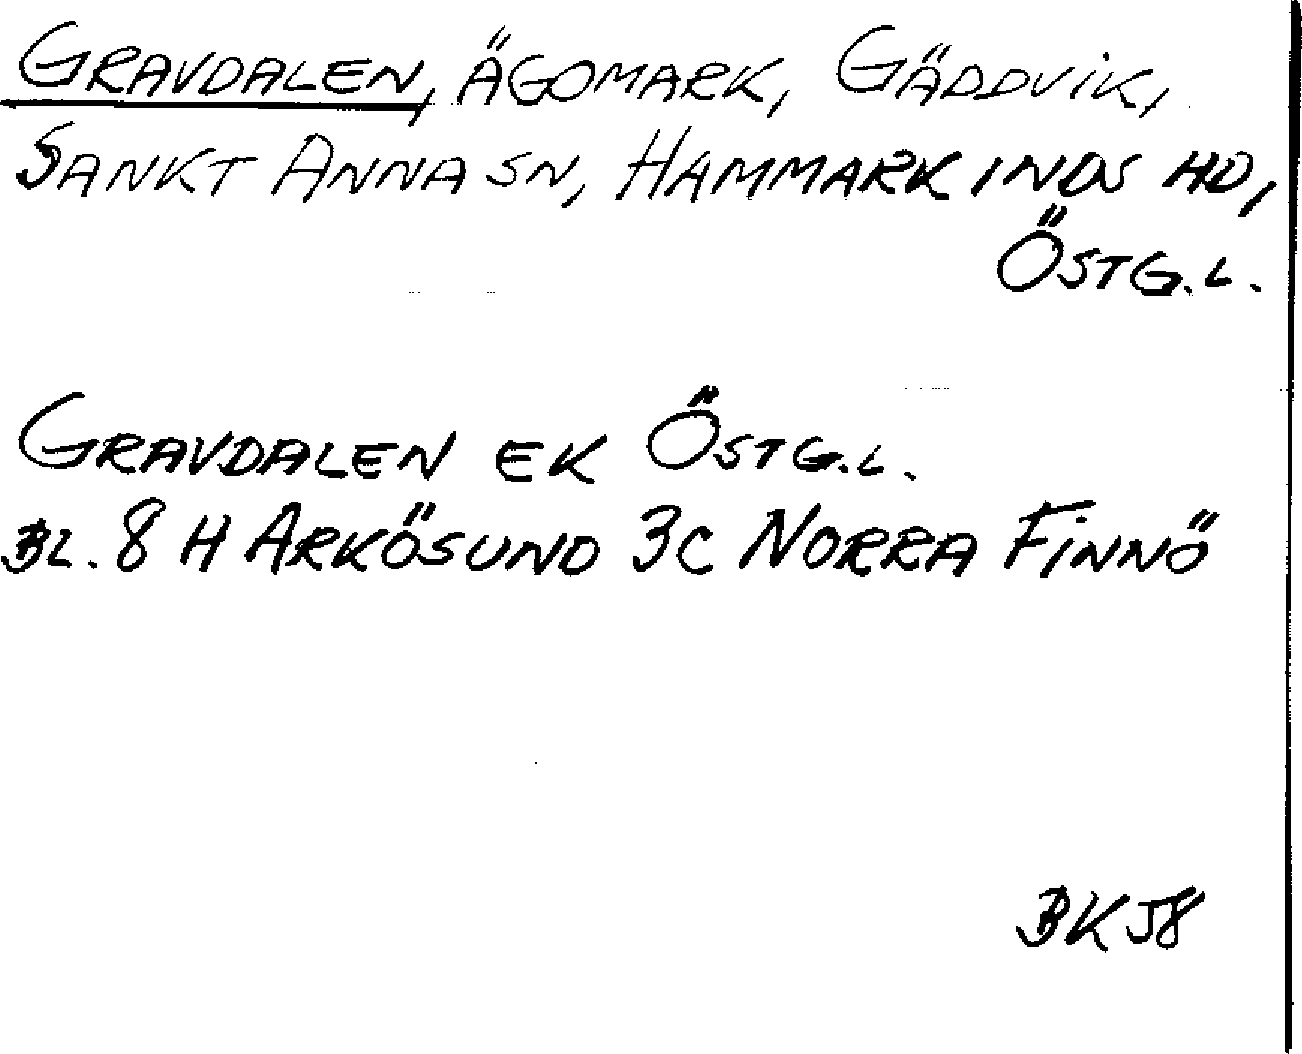 GRAVDALEN, ÄGOMARK, GÄDDVIK,
SANKT ANNA SN, HAMMARKINDS HD,
ÖSTG.L.
GRAVDALEN EK ÖSTG.L.
BL. 8 H ARKÖSUND 3C NORRA FINNÖ
BK 58